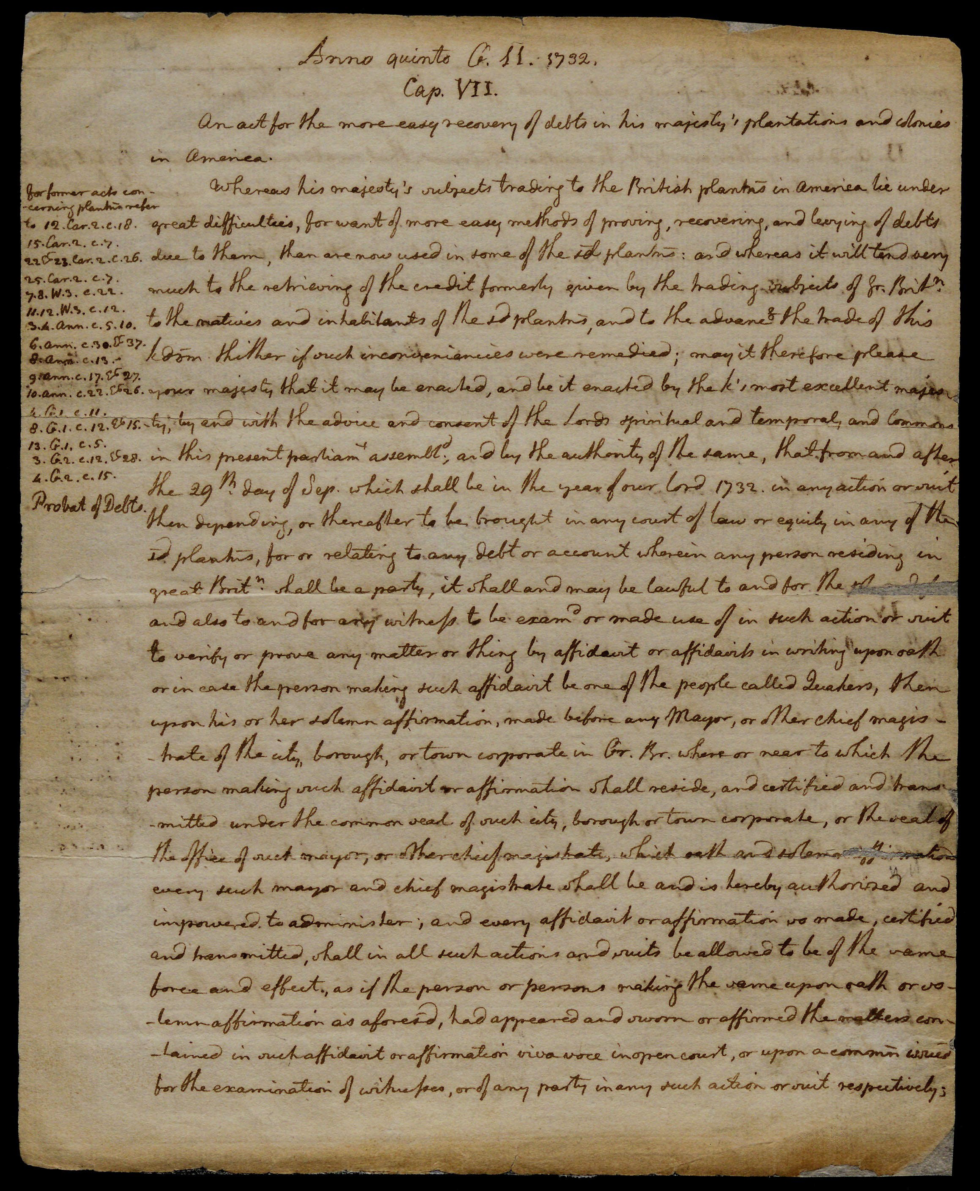 Anno quinto G. II. 1732.
Cap. VII.
An act for the more easy recovery of debts in his majesty's plantations and colonies
in America.
for former acts con-
-cerning plantns refer
to 12. Car. 2. c. 18.
15. Car. 2. c. 7.
22 & 23. Car. 2. c. 26.
25. Car. 2. c. 7.
7. 8. W. 3. c. 22.
11. 12. W. 3. c. 12.
3. 4. Ann. c. 5. 10.
6. Ann. c. 30. & 37.
8. Ann. c. 13.
9. Ann. c. 17. & 27.
10. Ann. c. 22. & 26.
4. G. 1. c. 11.
8. G. 1. c. 12. & 15.
13. G. 1. c. 5.
3. G. 2. c. 12. & 28.
4. G. 2. c. 15.
Probat of Debts.
Whereas his majesty's subjects trading to the British plantns in America lie under
great difficulties, for want of more easy methods of proving, recovering, and levying of debts
due to them, than are now used in some of the sd plantns: and whereas it will tend very
much to the retrieving of the credit formerly given by the trading subjects of Gr. Britn
to the natives and inhabitants of the sd plantns, and to the advancg the trade of this
kdom thither if such inconveniencies were remedied; may it therefore please
your majesty that it may be enacted, and be it enacted by the k's most excellent majes-
-ty, by and with the advice and consent of the Lords spiritual and temporal, and Commons
in this present parliamt assembld, and by the authority of the same, that from and after
the 29th day of Sep. which shall be in the year of our lord 1732. in any action or suit
then depending, or thereafter to be brought in any court of law or equity in any of the
sd plantns, for or relating to any debt or account wherein any person residing in
great Britn shall be a party, it shall and may be lawful to and for the
and also to and for any witness to be examd or made use of in such action or suit
to verify or prove any matter or thing by affidavit or affidavits in writing upon oath
or in case the person making such affidavit be one of the people called Quakers, then
upon his or her solemn affirmation, made before any Mayor, or other chief magis-
-trate of the city, borough, or town corporate in Gr. Br. where or near to which the
person making such affidavit or affirmation shall reside, and certified and trans-
-mitted under the common seal of such city, borough or town corporate, or the seal of
the office of such mayor, or other chief magistrate, which oath and solemn
every such mayor and chief magistrate shall be and is hereby authorized and
impowered to administer; and every affidavit or affirmation so made, certified
and transmitted, shall in all such actions and suits be allowed to be of the same
force and effect, as if the person or persons making the same upon oath or so-
-lemn affirmation as aforesd, had appeared and sworn or affirmed the matters con-
-tained in such affidavit or affirmation viva voce in open court, or upon a commn issued
for the examination of witnesses, or of any party in any such action or suit respectively;